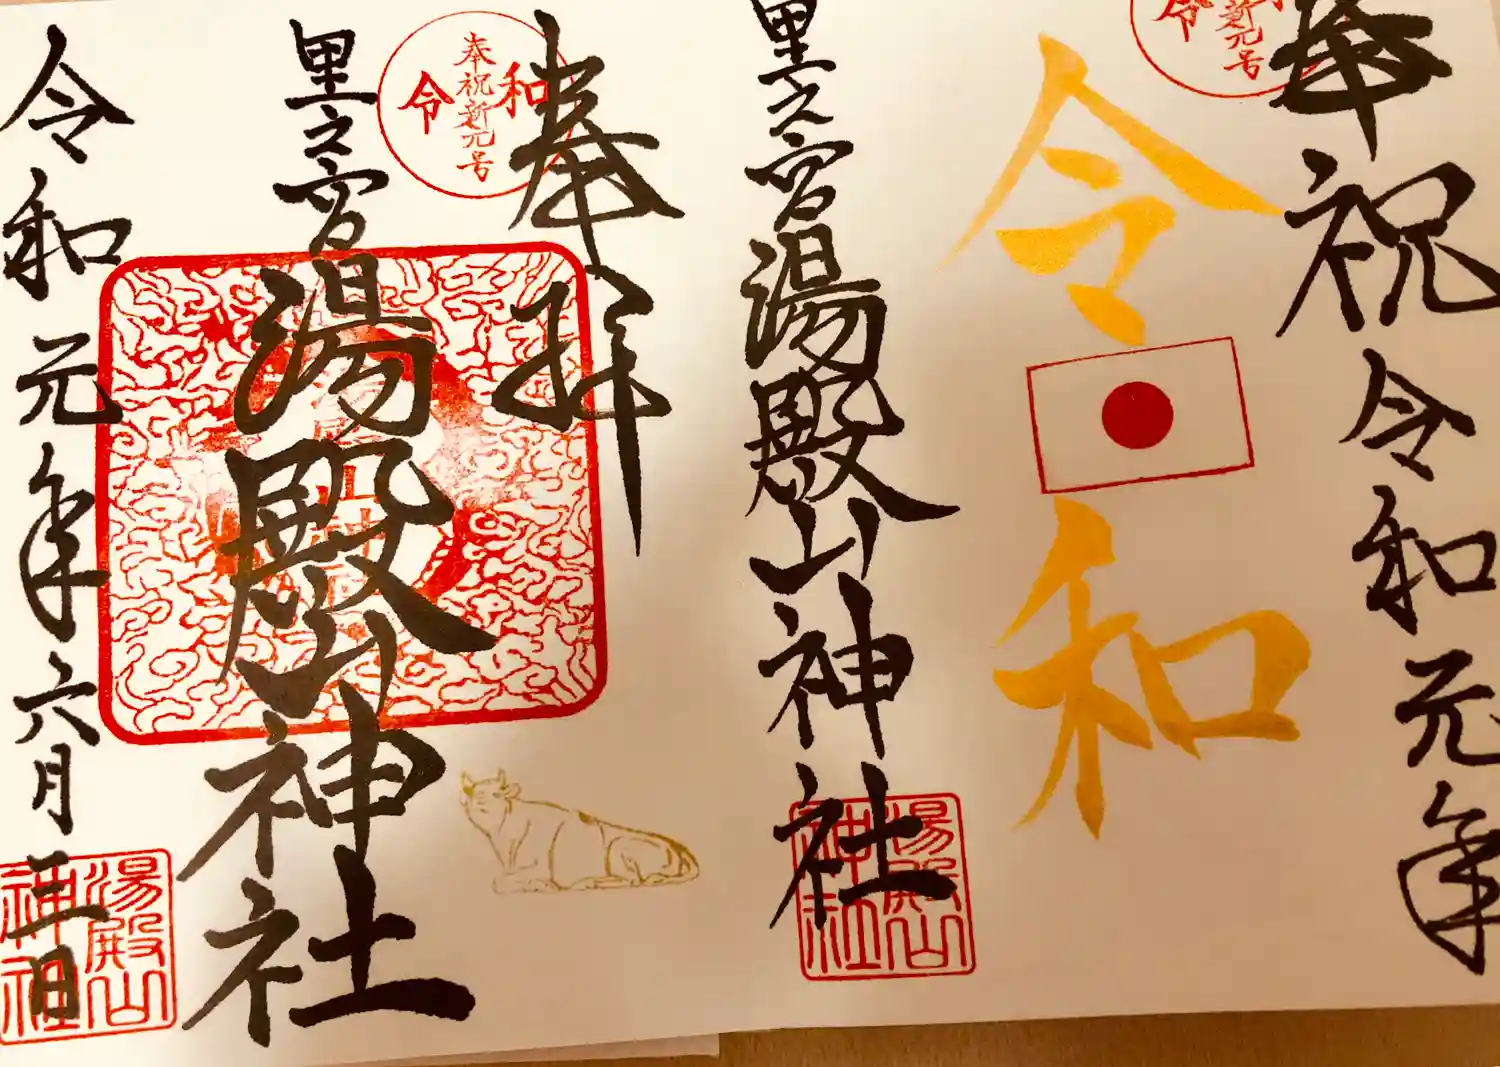 奉祝 令和元年
令和
奉祝新元号
令
里之宮 湯殿山神社
湯殿山
神社
奉拝
奉祝新元号
令和
里之宮 湯殿山神社
令和元年六月三日
湯殿山
神社